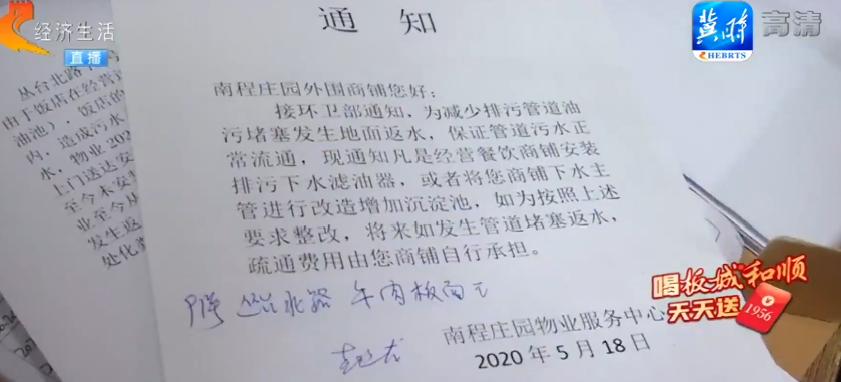 经济生活
直播
冀时
HEBRTS
高清
通 知
南程庄园外围商铺您好：
接环卫部通知，为减少排污管道油
污堵塞发生地面返水，保证管道污水正
常流通，现通知凡是经营餐饮商铺安装
排污下水滤油器，或者将您商铺下水主
管进行改造增加沉淀池，如为按照上述
要求整改，将来如发生管道堵塞返水，
疏通费用由您商铺自行承担。
牛肉板面
南程庄园物业服务中心
2020 年 5 月 18 日
丛台北路
由于饭店在经营
油池），饭店的
内，造成污水
水，物业 202
上门送达安
至今未安
业至今从
发生返
处化
喝板城和顺
天天送
1956